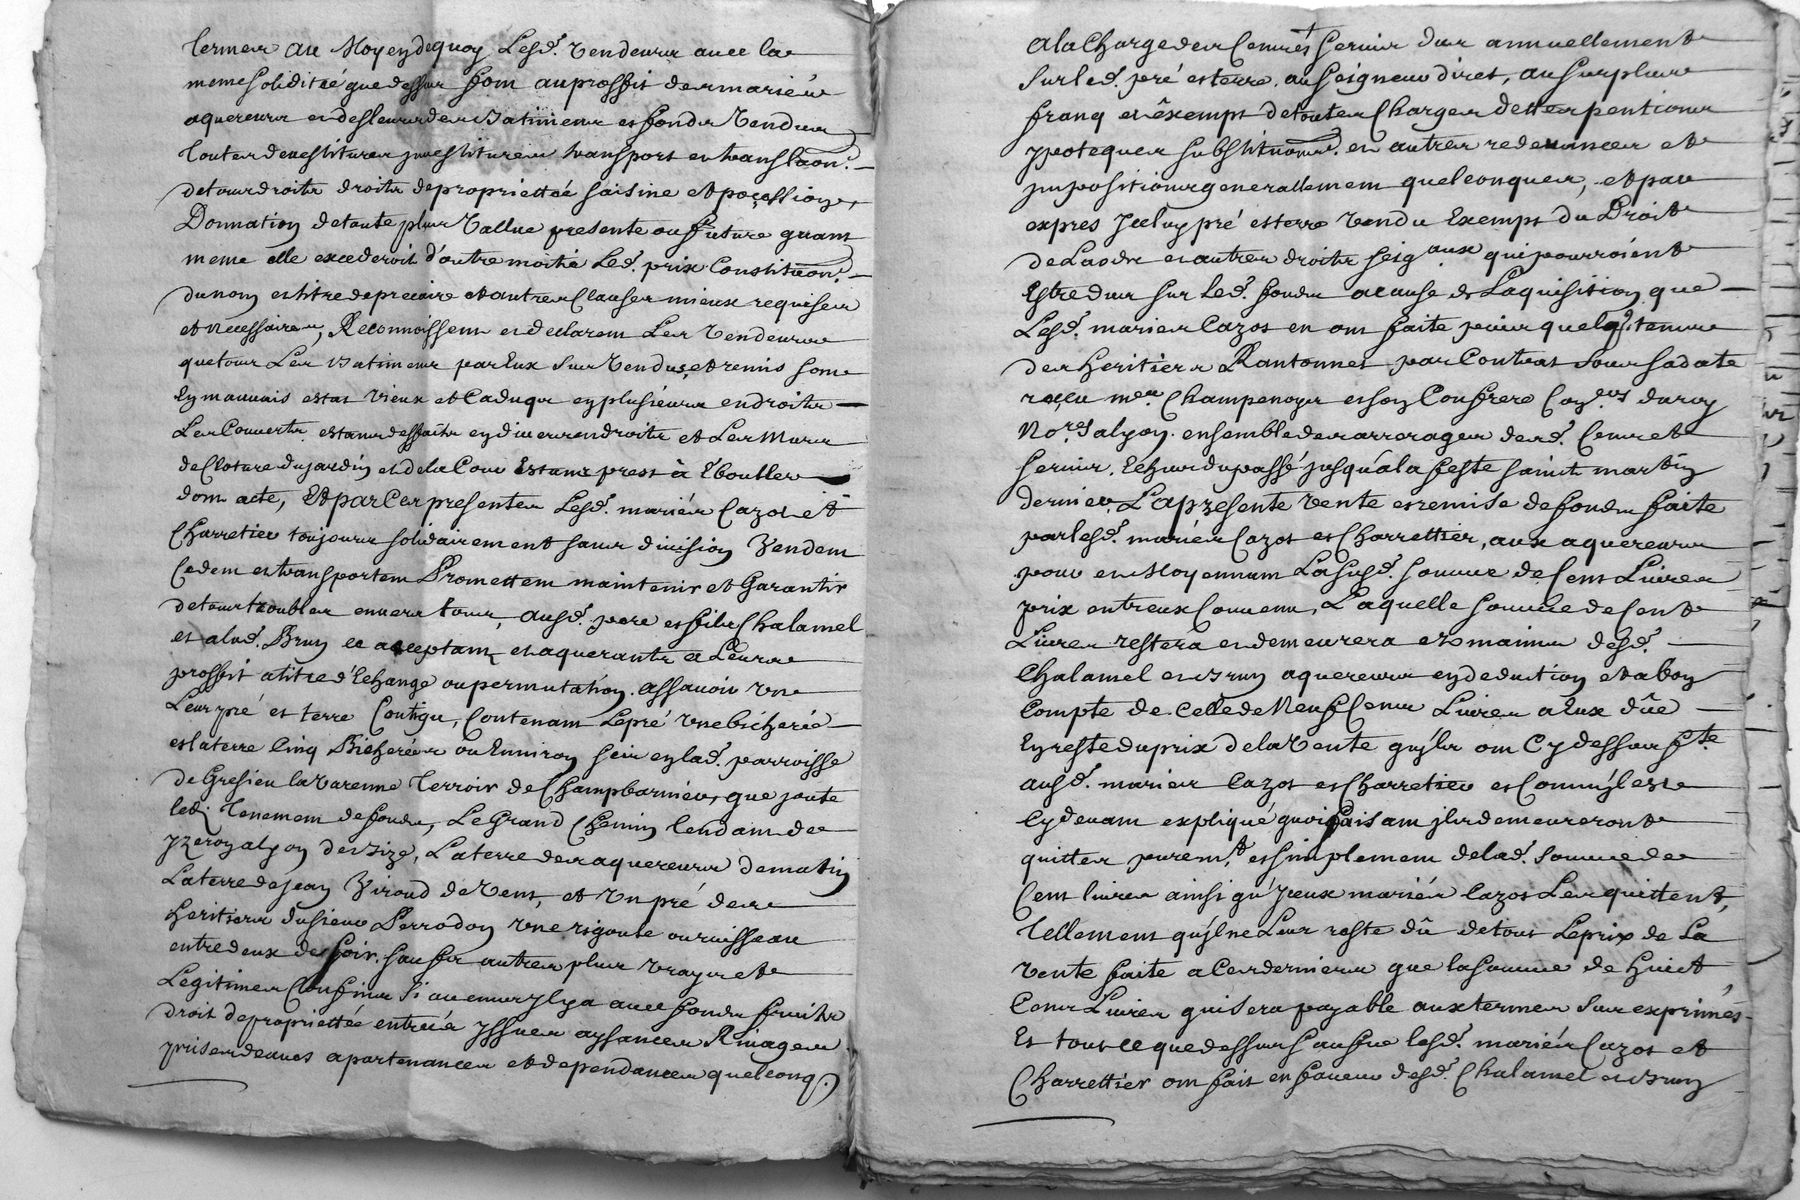 termes au Moyen de quoy Lesd. vendeurs avec la
meme soliditté que dessus font au proffit des mariés
aquereurs et des leurs des Batimens et fonds vendus
toutes devestitures jnvestitures transport et translaon.
de tous droits droits de propriettée saisine et pocession,
Donnation de toute plus vallue presente ou future quant
meme elle excederoit d'outre moitié Led. prix Constitution.
du nom et titre de precaire et autres Clauses mieux requises
et necessaires, Reconnoissent et declarent Les vendeurs
que tous Les Batimens par Eux Sus vendus, et remis sont
En mauvais estat vieux et Caduqs en plusieurs endroits
Les Couverts estans deffaits en divers endroits et Les Murs
de Cloture du jardin et de la Cour Estans prest à Eboulles
dont acte, Et par Ces presentes Lesd. mariés Cazot et
Charretier toujours solidairement sans division Vendent
Cedent et transportent Promettent maintenir et Garantir
de tous troubles envers tous, ausd. pere et fils Chalamel
et alad. Brun ce acceptant et aquerants a Leurs
proffit a titre d'Echange ou permutation. assavoir vne
Leur pré et terre Contigu, Contenant Le pré vne bicherée
et la terre Cinq Bicherées ou Environ scis en lad. parroisse
de Gresieu la varenne Terroir de Champbarnier, que joute
led. Tenement de fonds, Le Grand Chemin tendant de
yzeron a lyon de bize, La terre des aquereurs de matin
La terre de jean Viroud de vent, et vn pré des
heritiers du sieur Perrodon vne rigoule ou ruisseau
entre deux de soir. sauf ses autres plus vrays et
Legitimes Confins Si aucuns jl y a avec fonds fruits
droit de propriettée entrées yssues aysances Rivages
prises deaues apartenances et dependances quelconq.
a la Charge des Cens et Servis dus annuellement
Sur led. pré et terre. au seigneur direct, au surplus
franq et exempt de toutes Charges dettes pentions
ypoteques substituons. et autres redevances et
jmpositions generallement quelconques, et par
expres Jceluy pré et terre vendu Exempt du Droit
de Laods et autres droits seigaux qui pourroient
Estre dus sur led. fonds a cause de Laquisition que
Lesd. mariés Cazot en ont faite puis quelq. tems
des heritiers Rantonnet par Contrat sous sa date
reçeu mee. Champenoys et son Confrere Coners du roy
Nores a lyon. ensemble des arrerages desd. Cens et
servis. Echus du passé jusqu'a la feste saint martin
dernier, La presente vente et remise de fonds faite
par lesd. mariés Cazot et Charrettier, aux aquereurs
pour et Moyennant La susd. somme de Cent Livres
prix entreux Convenu, Laquelle somme de Cent
Livres restera et demeurera es mains desd.
Chalamel et Brun aquereurs en deduction et a bon
Compte de Celle de Neuf Cens Livres a Eux düe
En reste du prix de la vente qu'jls ont Cy dessus fte
ausd. mariés Cazot et Charretier et Comm'jl est
Cy devant expliqué quoi faisant jls demeureront
quittes purem.t et simplement de lad. somme de
Cent livres ainsi qu'jceux mariés Cazot Les quittent,
Tellement qu'jl ne Leur reste dû de tout Le prix de La
vente faite a Ces derniers que la somme de huict
Cens Livres qui sera payable aux termes sus exprimés
Et tout ce que dessus sauf que lesd. mariés Cazot et
Charrettier ont fait en faveur desd. Chalamel et Brun